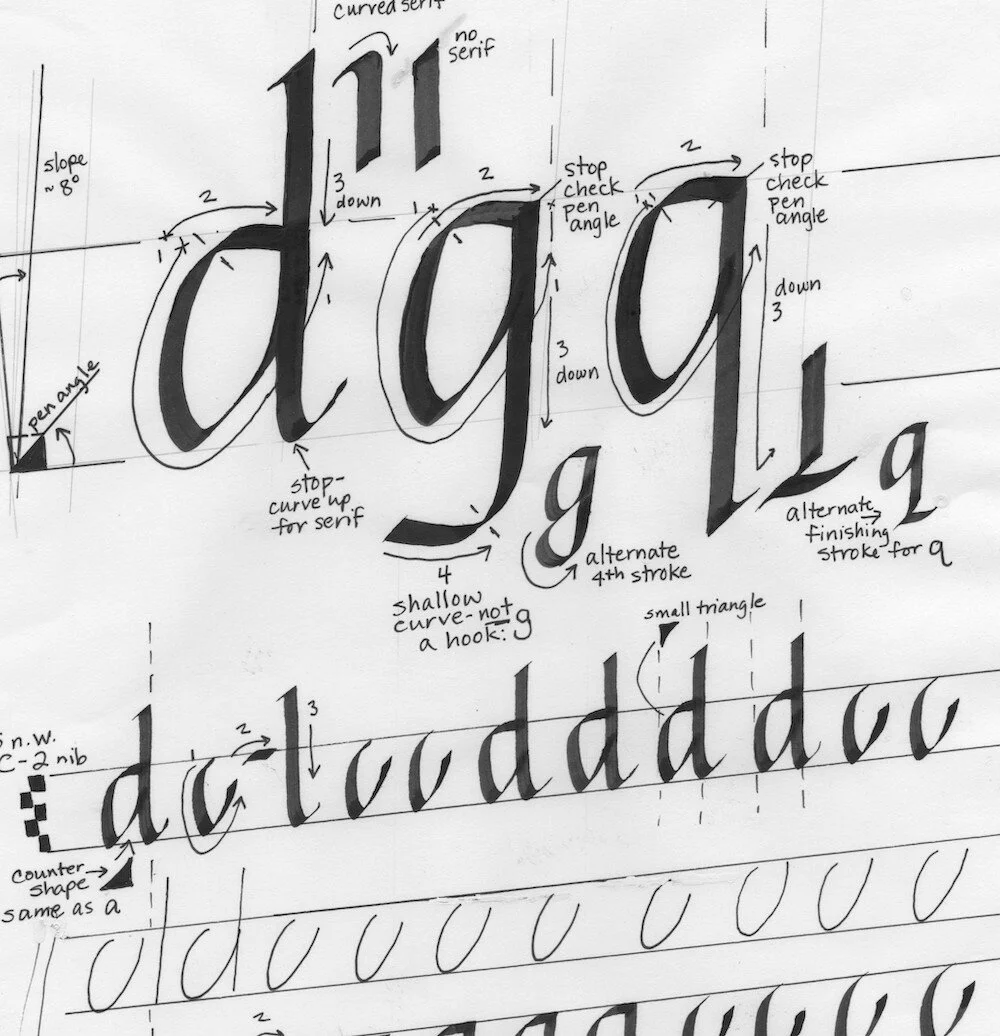 curved serif
no
serif
slope
~ 8°
2
3
down
2
stop
check
pen
angle
2
stop
check
pen
angle
1
1
1
1
1
1
d g q
1
1
3
down
down
3
pen angle
stop-
curve up
for serif
1
1
4
shallow
curve - not
a hook: g
g
alternate
4th stroke
alternate
finishing
stroke for q
q
small triangle
n.w.
C-2 nib
d
1
2
3
d d d d
counter
shape
same as a
2